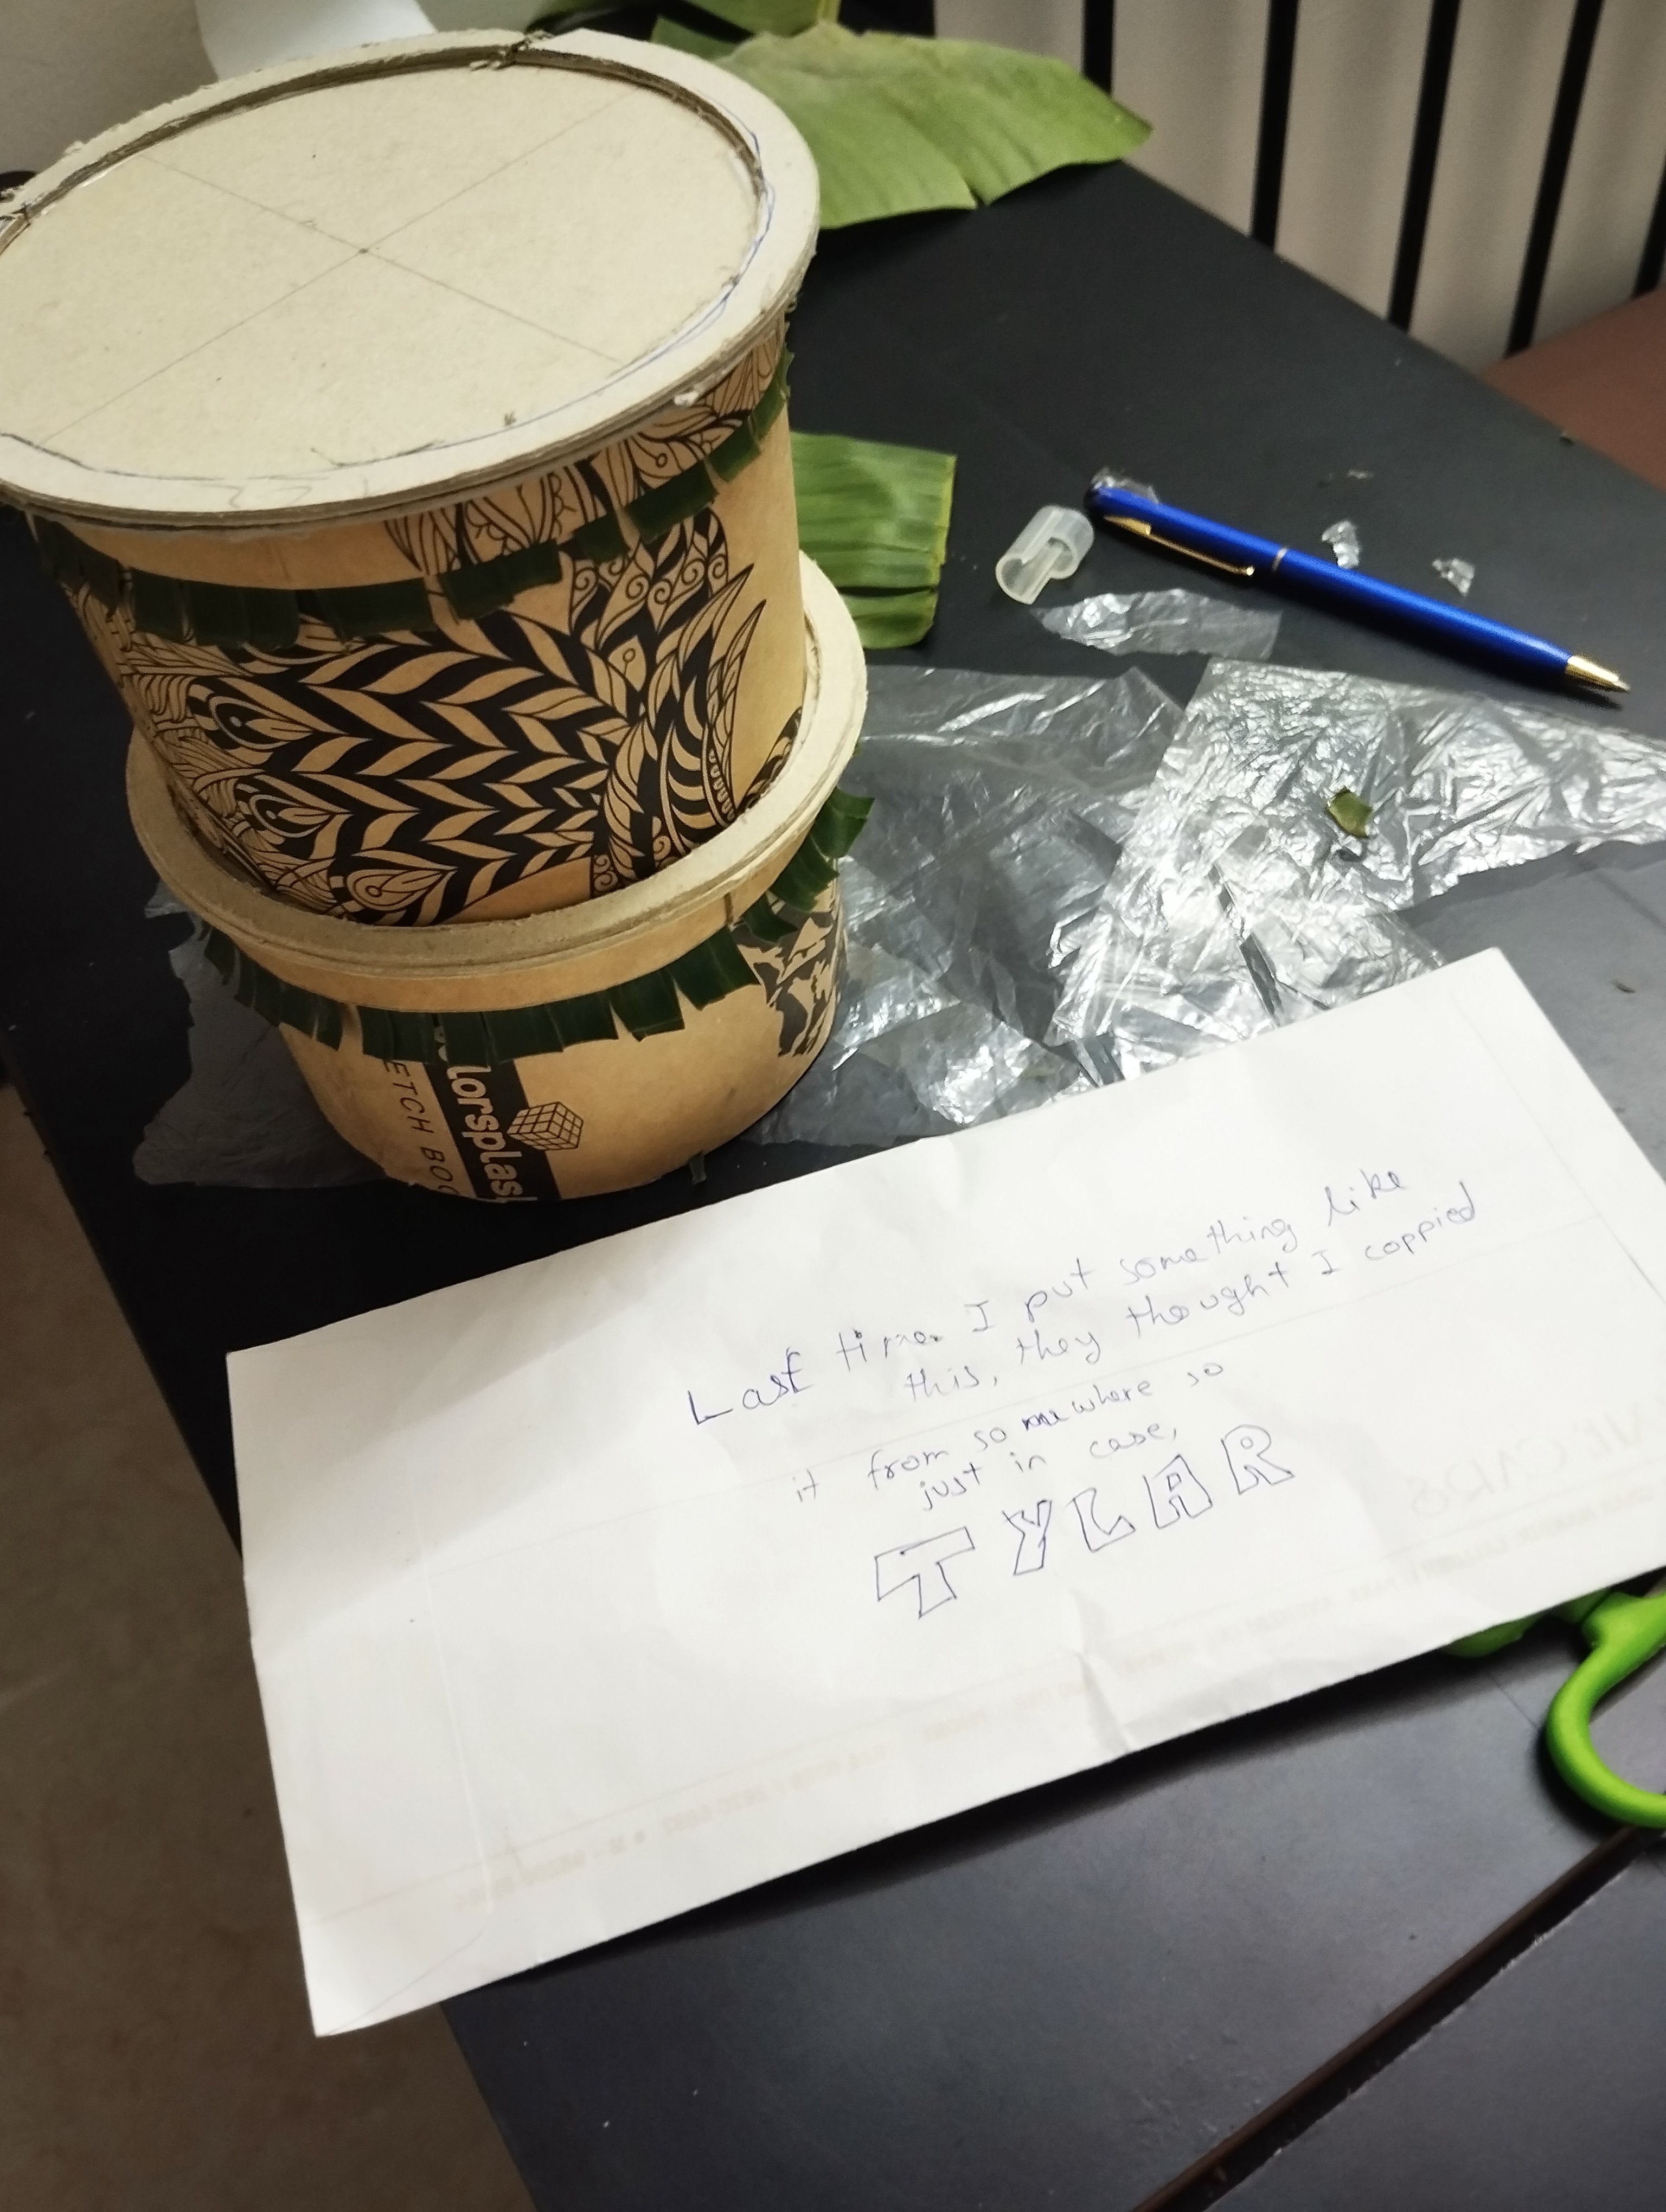 lorsplash
ETCH BOO
Last time I put something like
this, they thought I coppied
it from somewhere so
just in case,
TYLAR